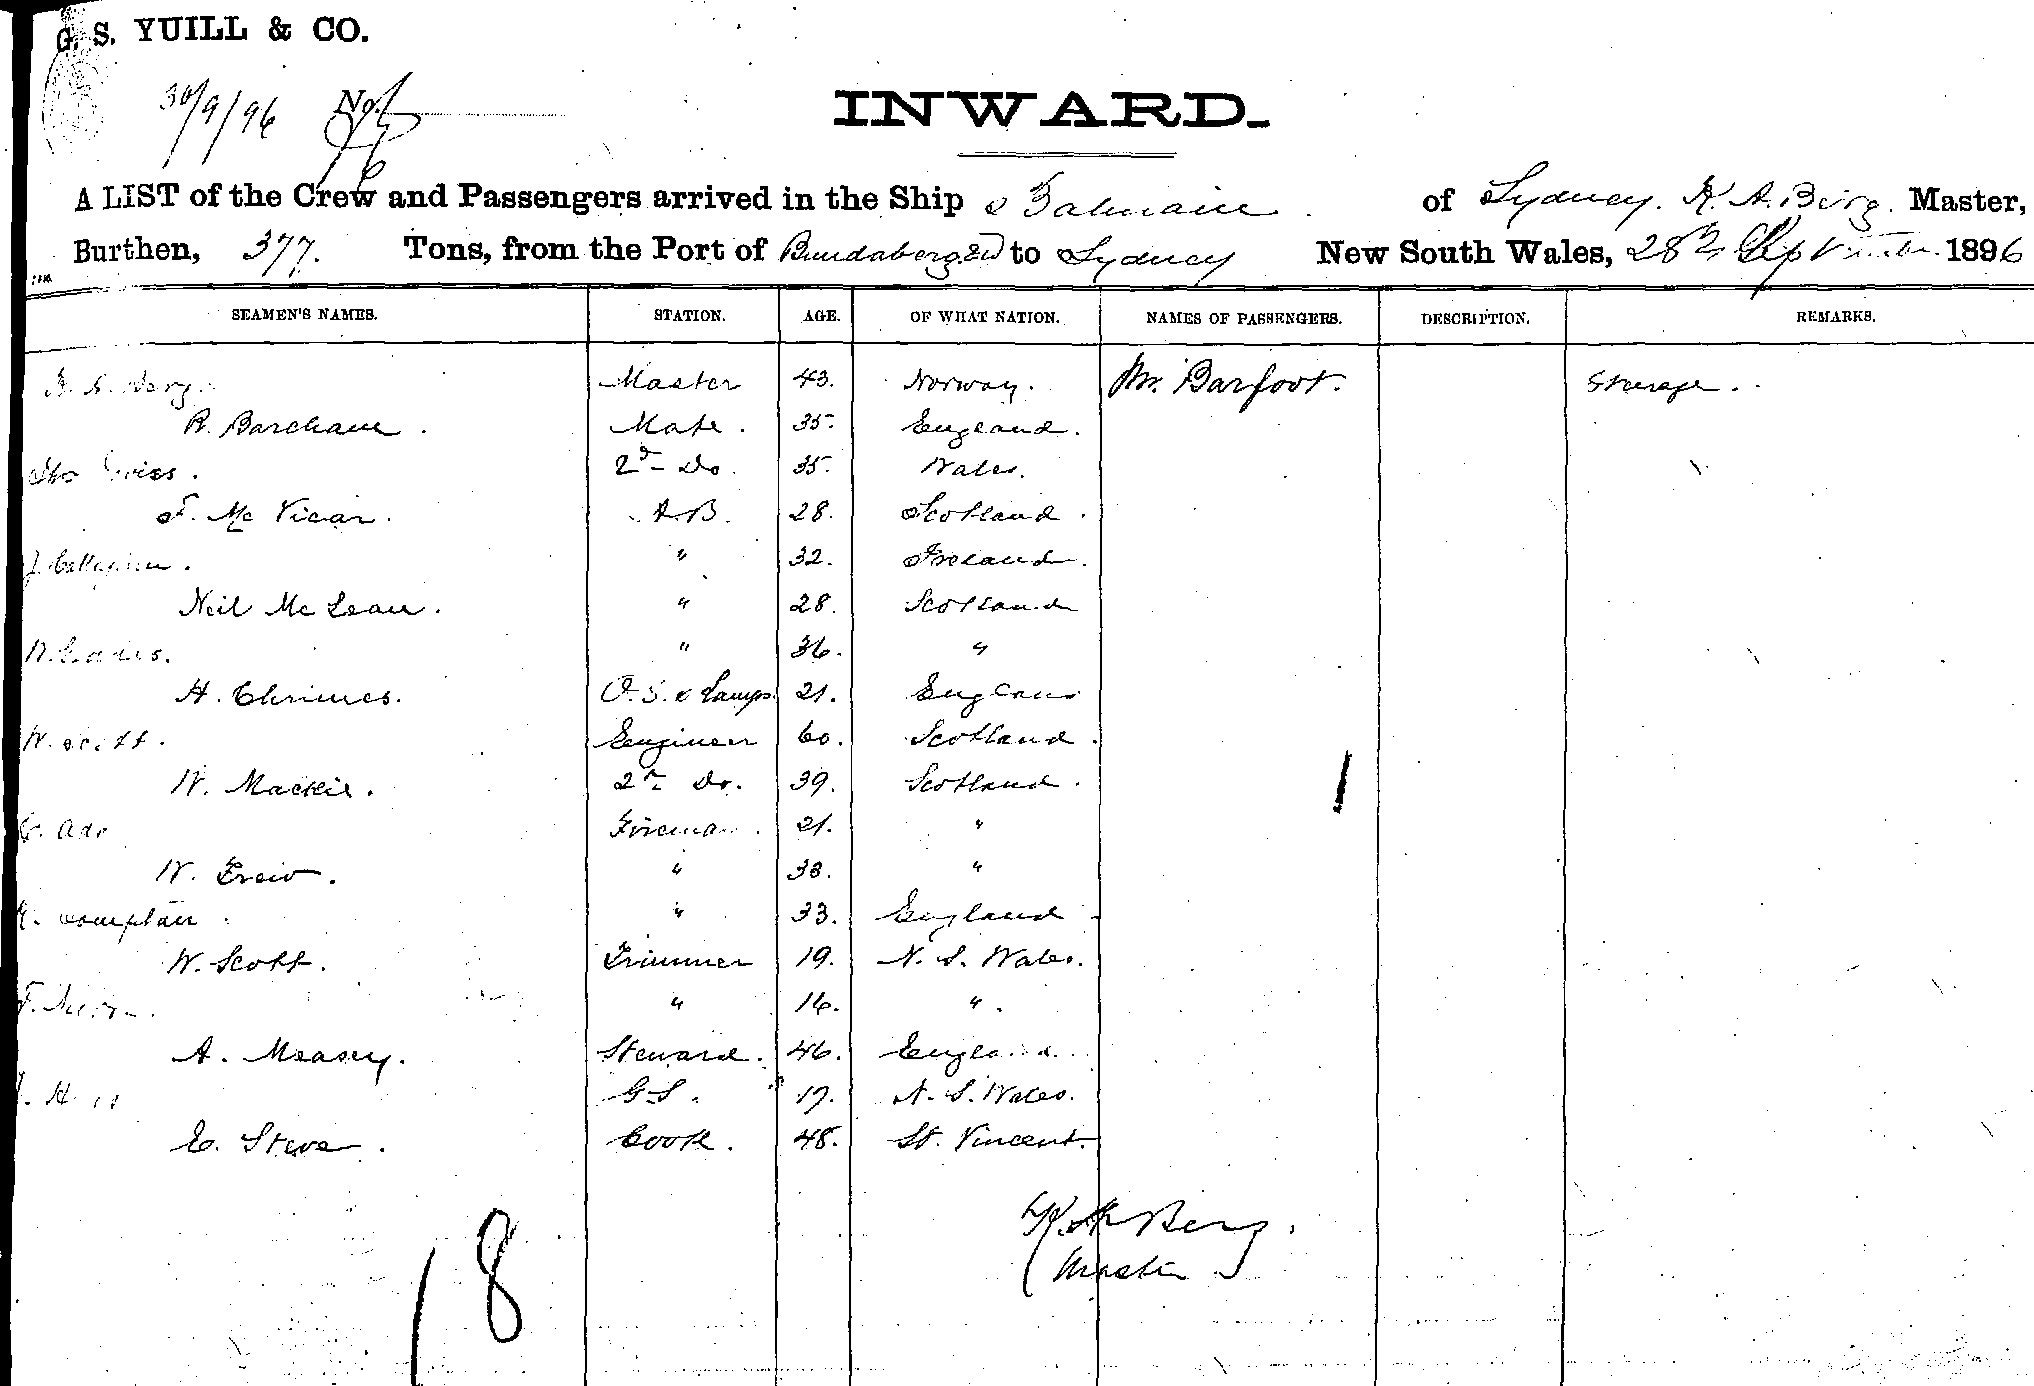 G. S. YUILL & CO.
30/9/96 No.
INWARD.
A LIST of the Crew and Passengers arrived in the Ship Balmain of Sydney. K. A. Berg. Master,
Burthen, 377. Tons, from the Port of Bundaberg to Sydney New South Wales, 28th September 1896
SEAMEN'S NAMES. STATION. AGE. OF WHAT NATION. NAMES OF PASSENGERS. DESCRIPTION. REMARKS.
Berg. Master 43. Norway. Mr. Barfoot. Steerage.
R. Barcham. Mate. 35. England.
2d Do. 35. Wales.
F. Mc Vicar. A.B. 28. Scotland.
J. " 32. Ireland.
Neil Mc Lean. " 28. Scotland
" 36. "
H. Chrimes. O.S. & Lamps 21. England
W. Scott. Engineer 60. Scotland.
W. Mackie. 2nd Do. 39. Scotland.
Fireman. 21. "
W. Freiv. " 33. "
Compton " 33. England
W. Scott. Trimmer 19. N. S. Wales.
F. " 16. "
A. Measey. Steward. 46. England.
G S. 17. N. S. Wales.
E. Steve. Cook. 48. St. Vincent.
K. A. Berg.
Master
18